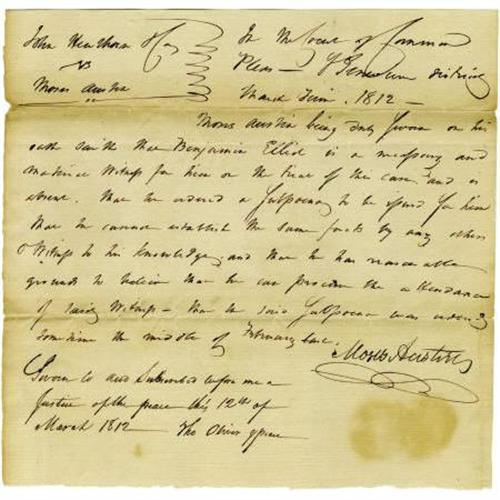 John Hewthorn & Co
vs
Moses Austin
In the Court of Common
Pleas — District
March Term. 1812 —
Moses Austin being duly Sworn on his
oath saith that Benjamin Elliot is a necessary and
material Witness for him on the trial of this cause and is
absent. that he ordered a Subpoena to be issued for him
that he cannot establish the same facts by any other
Witness to his knowledge, and that he has reasonable
grounds to believe that he can procure the attendance
of said Witness — that the said Subpoena was ordered
sometime the middle of February last.
Moses Austin
Sworn to and Subscribed before me a
Justice of the peace this 12th of
March 1812 Tho Oliver